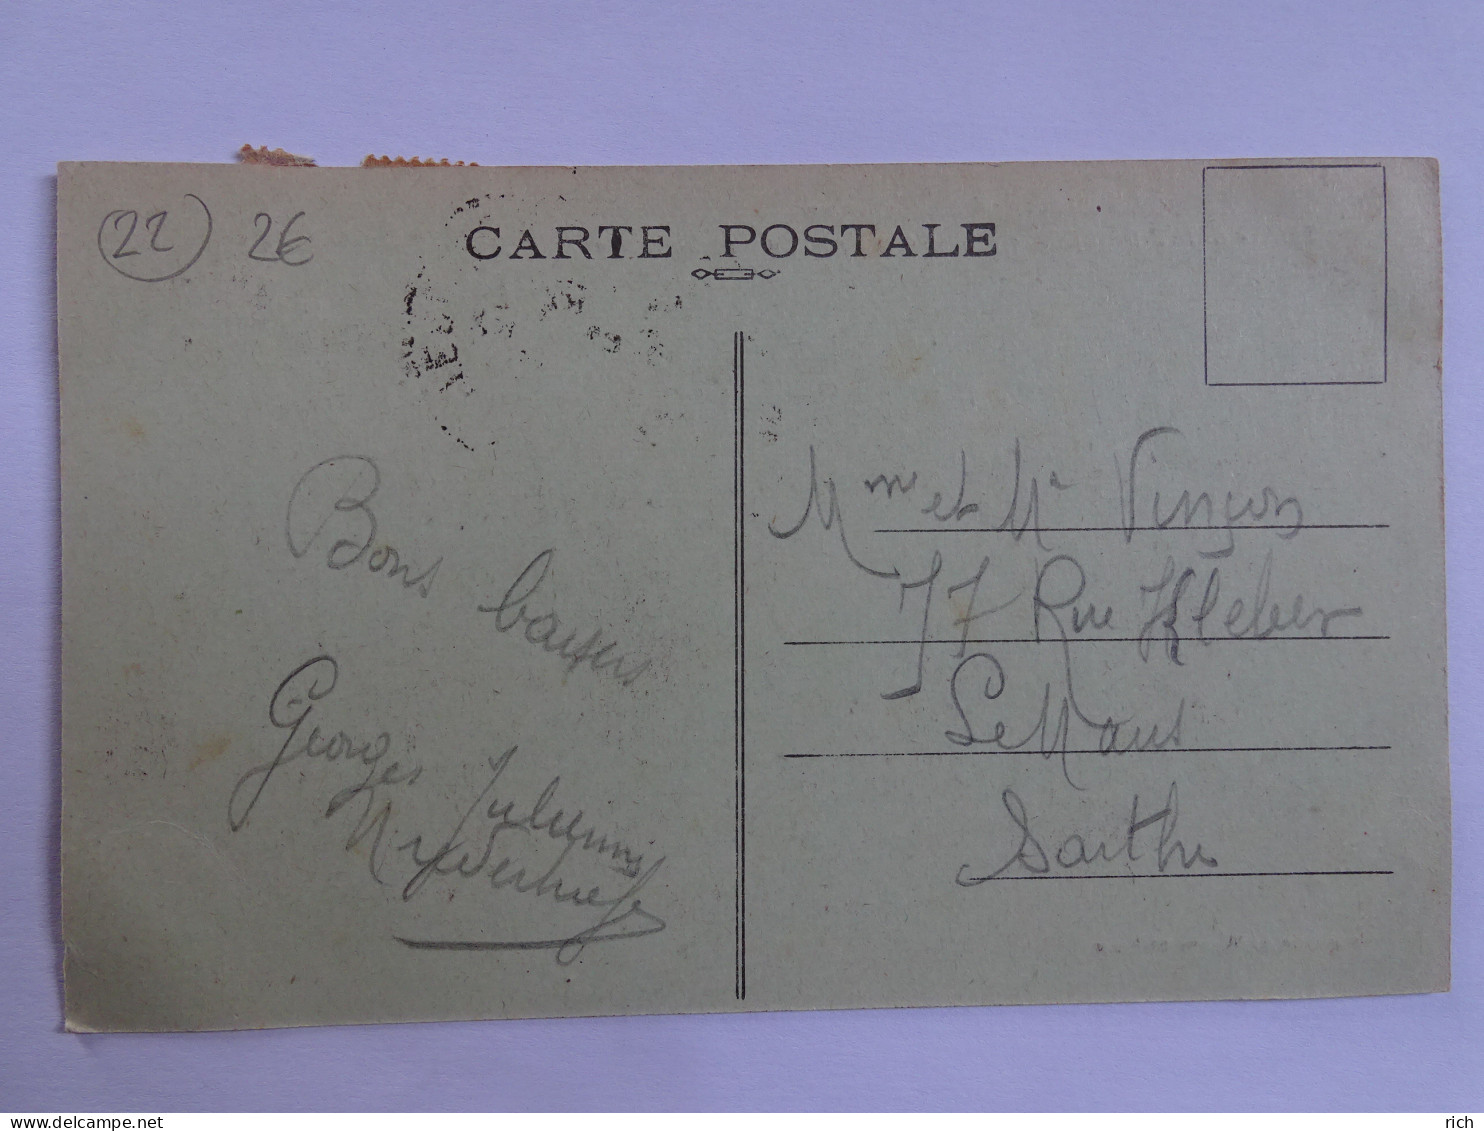 22 2€
CARTE POSTALE
Bons baisers
Georges Julienne
Mme et Mr Vinçon
77 Rue Kleber
Le Mans
Sarthe
rich